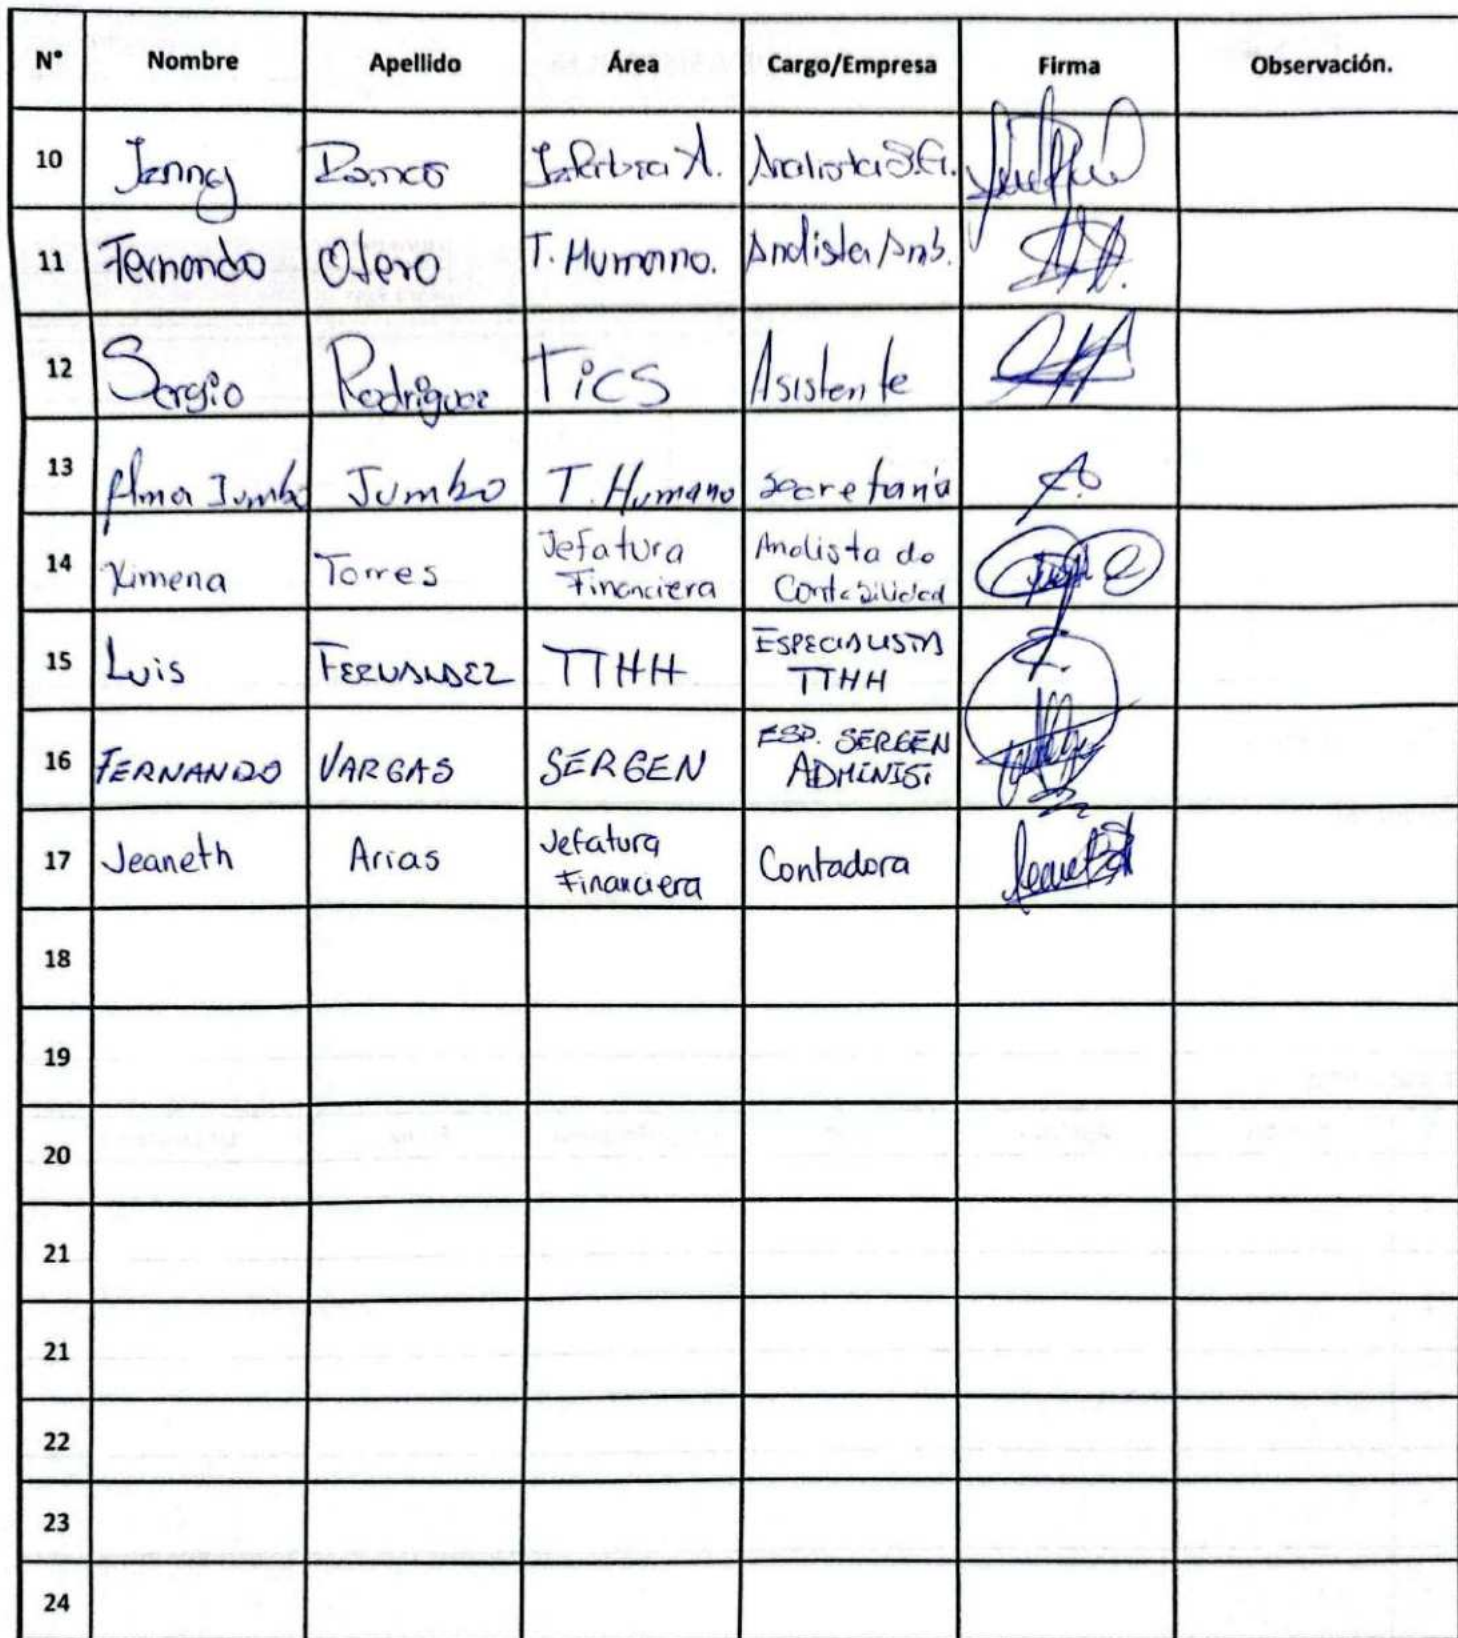 N° Nombre Apellido Área Cargo/Empresa Firma Observación.
10 Jenny
11 Fernando Otero T. Humano. Analista Amb.
12 Sergio Rodriguez Tics Asistente
13 Alma Jumbo Jumbo T. Humano secretaria
14 Ximena Torres Jefatura Financiera Analista de Contabilidad
15 Luis FERNANDEZ TTHH ESPECIALISTA TTHH
16 FERNANDO VARGAS SERGEN ESP. SERGEN ADMINIST
17 Jeaneth Arias Jefatura Financiera Contadora
18
19
20
21
21
22
23
24